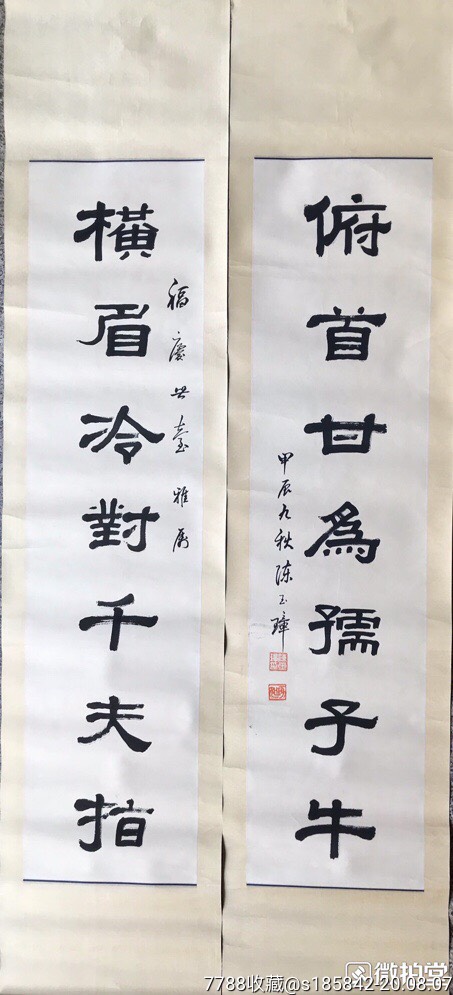 橫眉冷對千夫指
福慶兄臺 雅属
俯首甘為孺子牛
甲辰九秋 陈玉璋
微拍堂
7788收藏@s185842-20.08.07